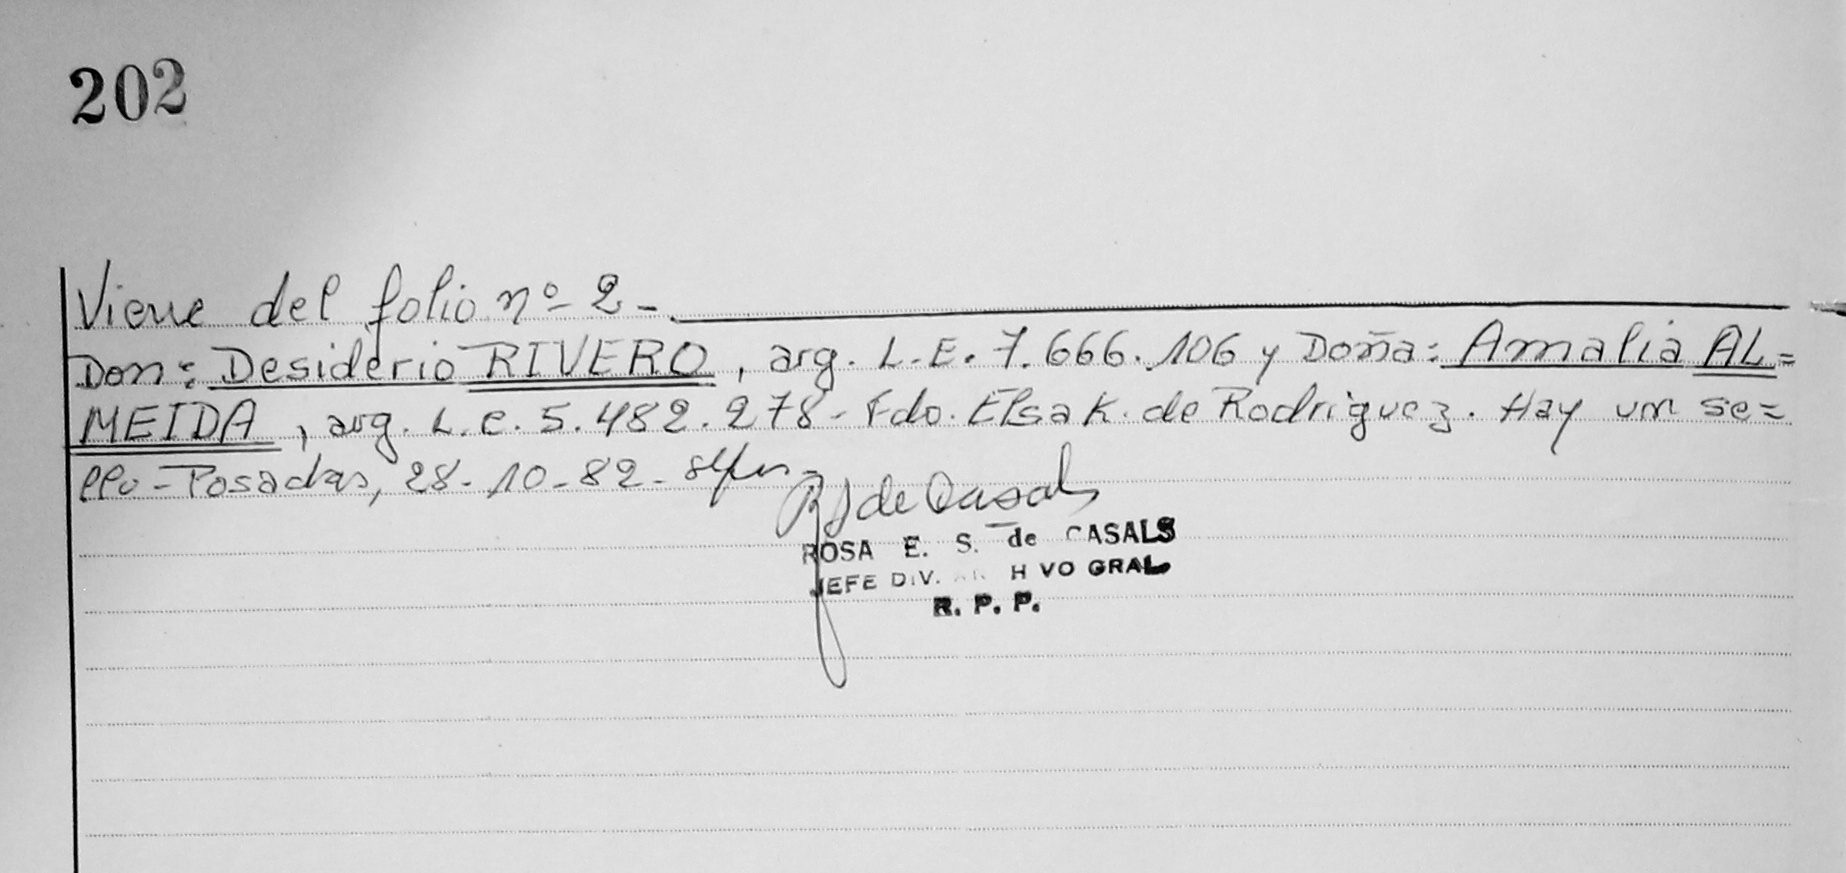 202
Viene del folio nº 2 -
Don: Desiderio RIVERO, arg. L.E. 7.666.106 y Doña: Amalia AL=
MEIDA, arg. L.C. 5.482.278- Fdo. Elsa K. de Rodriguez. Hay un se=
llo - Posadas, 28-10-82-
de Casals
ROSA E. S. de CASALS
JEFE DIV. AR H VO GRAL
R. P. P.